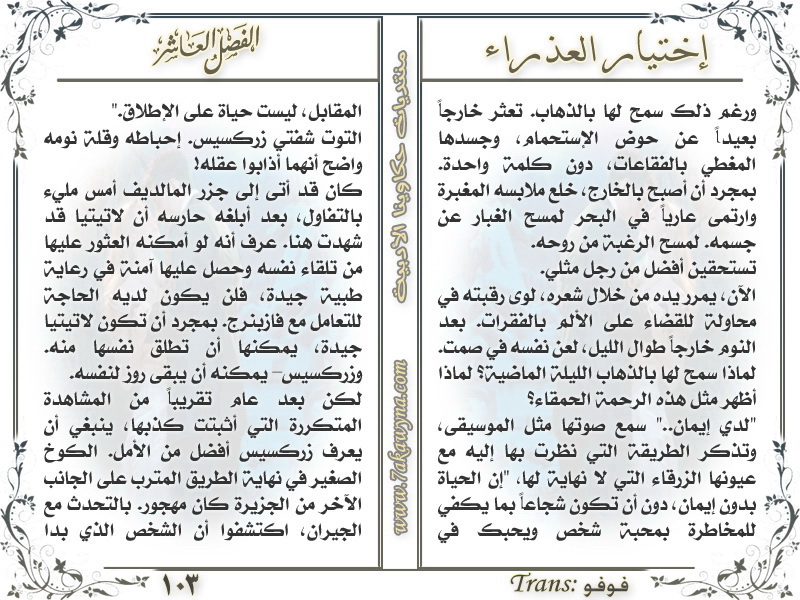 إختيار العذراء
ورغم ذلك سمح لها بالذهاب. تعثر خارجاً
بعيداً عن حوض الإستحمام، وجسدها
المغطي بالفقاعات، دون كلمة واحدة.
بمجرد أن أصبح بالخارج، خلع ملابسه المغبرة
وارتمى عارياً في البحر لمسح الغبار عن
جسمه. لمسح الرغبة من روحه.
تستحقين أفضل من رجل مثلي.
الآن، يمرر يده من خلال شعره، لوى رقبته في
محاولة للقضاء على الألم بالفقرات. بعد
النوم خارجاً طوال الليل، لعن نفسه في صمت.
لماذا سمح لها بالذهاب الليلة الماضية؟ لماذا
أظهر مثل هذه الرحمة الحمقاء؟
"لدي إيمان.." سمع صوتها مثل الموسيقى،
وتذكر الطريقة التي نظرت بها إليه مع
عيونها الزرقاء التي لا نهاية لها، "إن الحياة
بدون إيمان، دون أن تكون شجاعاً بما يكفي
للمخاطرة بمحبة شخص ويحبك في
Trans: فوفو
منتديات حكاوينا الادبية
www.7akawyna.com
الفصل العاشر
المقابل، ليست حياة على الإطلاق."
التوت شفتي زركسيس. إحباطه وقلة نومه
واضح أنهما أذابوا عقله!
كان قد أتى إلى جزر المالديف أمس مليء
بالتفاول، بعد أبلغه حارسه أن لاتيتيا قد
شهدت هنا. عرف أنه لو أمكنه العثور عليها
من تلقاء نفسه وحصل عليها آمنة في رعاية
طبية جيدة، فلن يكون لديه الحاجة
للتعامل مع فازبنرج. بمجرد أن تكون لاتيتيا
جيدة، يمكنها أن تطلق نفسها منه.
وزركسيس– يمكنه أن يبقى روز لنفسه.
لكن بعد عام تقريباً من المشاهدة
المتكررة التي أثبتت كذبها، ينبغي أن
يعرف زركسيس أفضل من الأمل. الكوخ
الصغير في نهاية الطريق المترب على الجانب
الآخر من الجزيرة كان مهجور. بالتحدث مع
الجيران، اكتشفوا أن الشخص الذي بدا
١٠٣